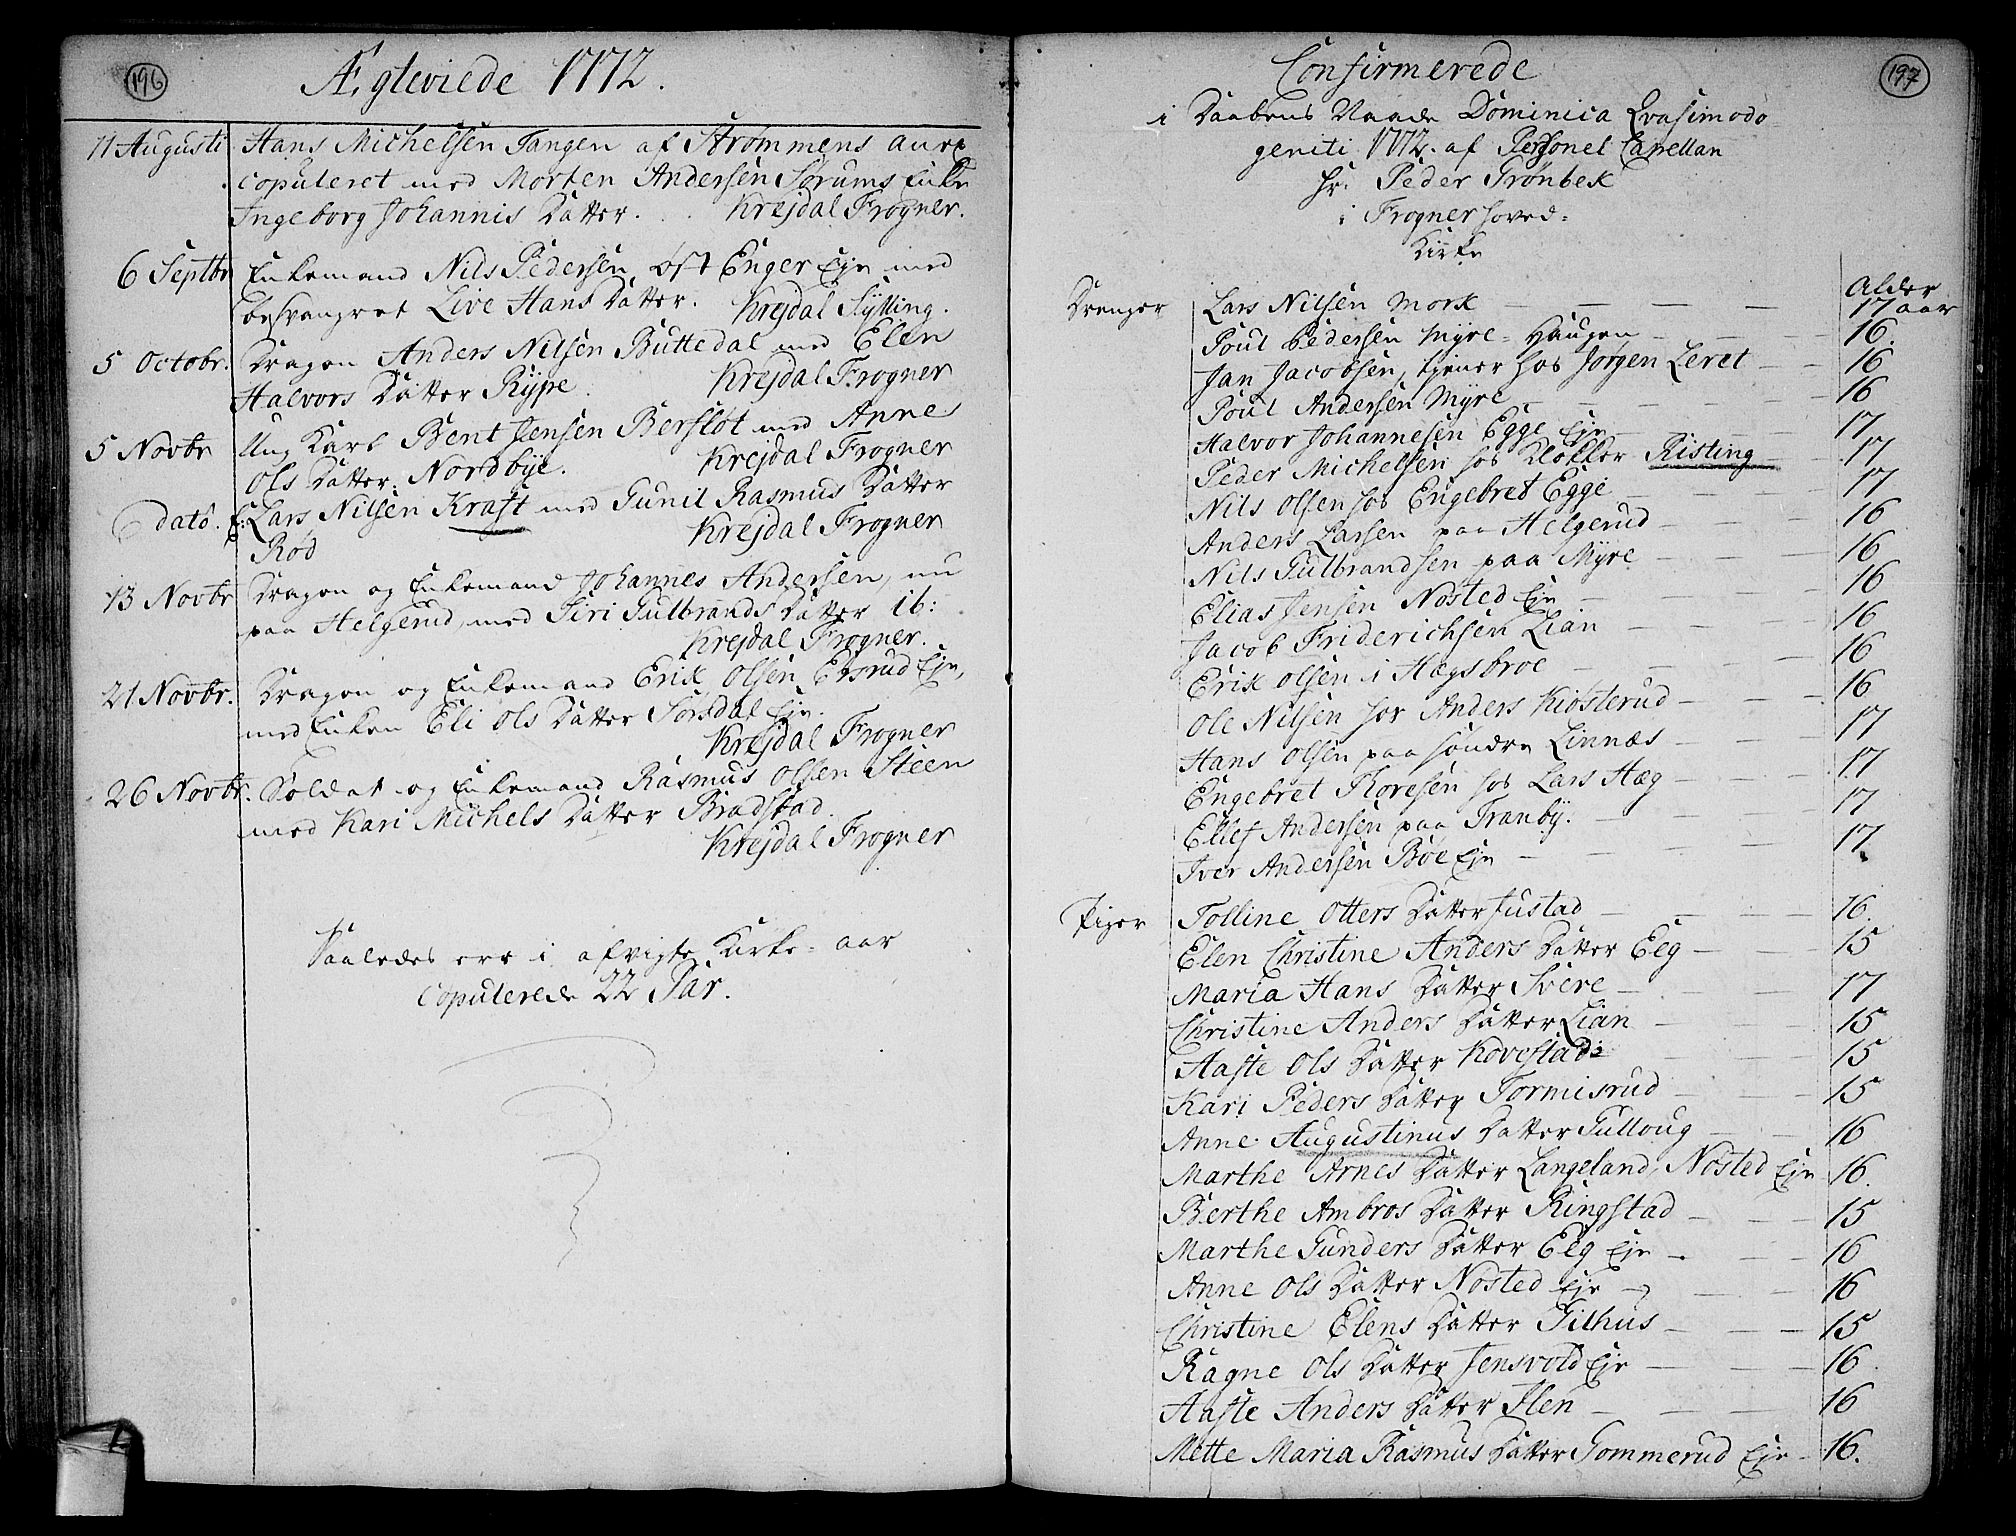 196
Ægteviede 1772.
11 Augusti Hans Michelsen Tangen af Strømmens
copuleret med Morten Andersen Sørums Enke
Ingeborg Johannis Datter. Krejdal Frogner.
6 Septbr Enkemand Nils Pedersen, øst Enger Eje med
besvangret Live Hans Datter. Krejdal Sylling.
5 Octobr. Dragon Anders Nilsen Buttedal med Elen
Halvors Datter Rype. Krejdal Frogner
5 Novbr Ung Karl Bent Jensen Berfløt med Anne
Ols Datter Nordbye. Krejdal Frogner
dato. Lars Nilsen Kraft med Gunil Rasmus Datter
Rød Krejdal Frogner
13 Novbr Dragon og Enkemand Johannes Andersen, nu
paa Helgerud, med Siri Gulbrands Datter ib:
Krejdal Frogner.
21 Novbr. Dragon og Enkemand Erik Olsen Egsrud Eje,
med Enken Eli Ols Datter Sørsdal Eje.
Krejdal Frogner
26 Novbr. Soldat og Enkemand Rasmus Olsen Steen
med Kari Michels Datter Bradstad.
Krejdal Frogner
Saaledes ere i afvigte Kirke-aar
copulerede 22 Par.
197
Confirmerede
i Daabens Naade Dominica Qvasimodo
geniti 1772. af Personel Capellan
Hr. Peder Grønbek
i Frogner Hoved-
Kirke
Alder
Drenger Lars Nilsen Mork 17 aar
Poul Pedersen Myre-Haugen 16.
Jan Jacobsen, tjener hos Jørgen Leret 16
Poul Andersen Myre 16
Halvor Johannesen Egge Eje 17
Peder Michelsen hos Klokker Risting 17
Nils Olsen hos Engebret Egge 17
Anders Larsen paa Helgerud 16
Nils Gulbrandsen paa Myre 16
Elias Jensen Nøsted Eje 16
Jacob Friderichsen Lian 16
Erik Olsen i Hægsbroe 16
Ole Nilsen hos Anders Kiøsterud 16
Hans Olsen paa søndre Linnæs 17
Engebret Thoresen hos Lars Hæg 17
Ellef Andersen paa Tranby. 17
Iver Andersen Bøe Eje 17.
Piger Tolline Otters Datter Justad 16.
Elen Christine Anders Datter Eeg 15
Maria Hans Datter Svere 17
Christine Anders Datter Lian 15
Aaste Ols Datter Kovestad 15
Kari Peders Datter Tormisrud 15
Anne Augustinus Datter Gulloug 16
Marthe Arnes Datter Langeland, Nøsted Eje 16.
Berthe Ambros Datter Ringstad 15
Marthe Gunders Datter Eeg Eje 16
Anne Ols Datter Nøsted Eje 16
Christine Elens Datter Gilhus 15
Ragne Ols Datter Jensvold Eje 16.
Aaste Anders Datter Ilen 16
Mette Maria Rasmus Datter Gommerud Eje 16.